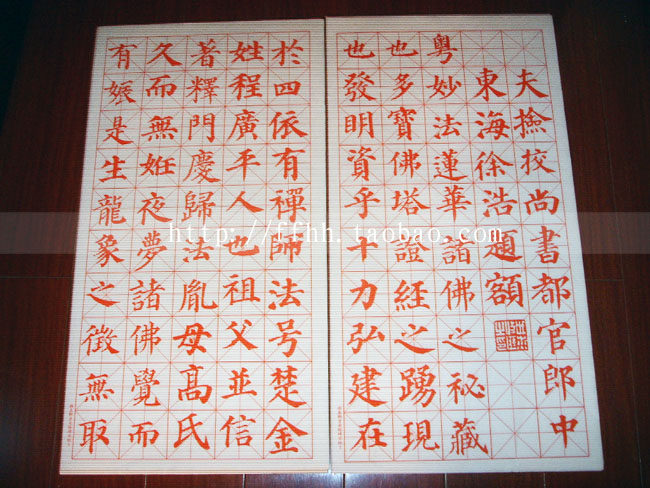 夫撿挍尚書都官郎中
東海徐浩題額
粤妙法蓮華諸佛之祕藏
也多寶佛塔證經之踴現
也發明資乎十力弘建在
於四依有禪師法号楚金
姓程廣平人也祖父並信
著釋門慶歸法胤母髙氏
久而無姙夜夢諸佛覺而
有娠是生龍象之徵無取
http://ffhh.taobao.com/